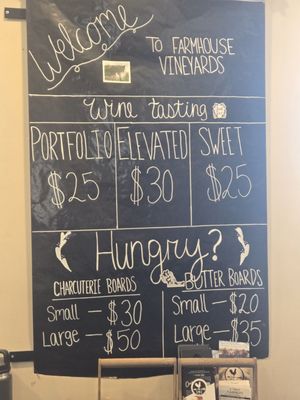 Welcome
To Farmhouse
Vineyards
Wine tasting
Portfolio Elevated Sweet
$25 $30 $25
Hungry?
Charcuterie Boards
Small — $30
Large — $50
Butter Boards
Small — $20
Large — $35